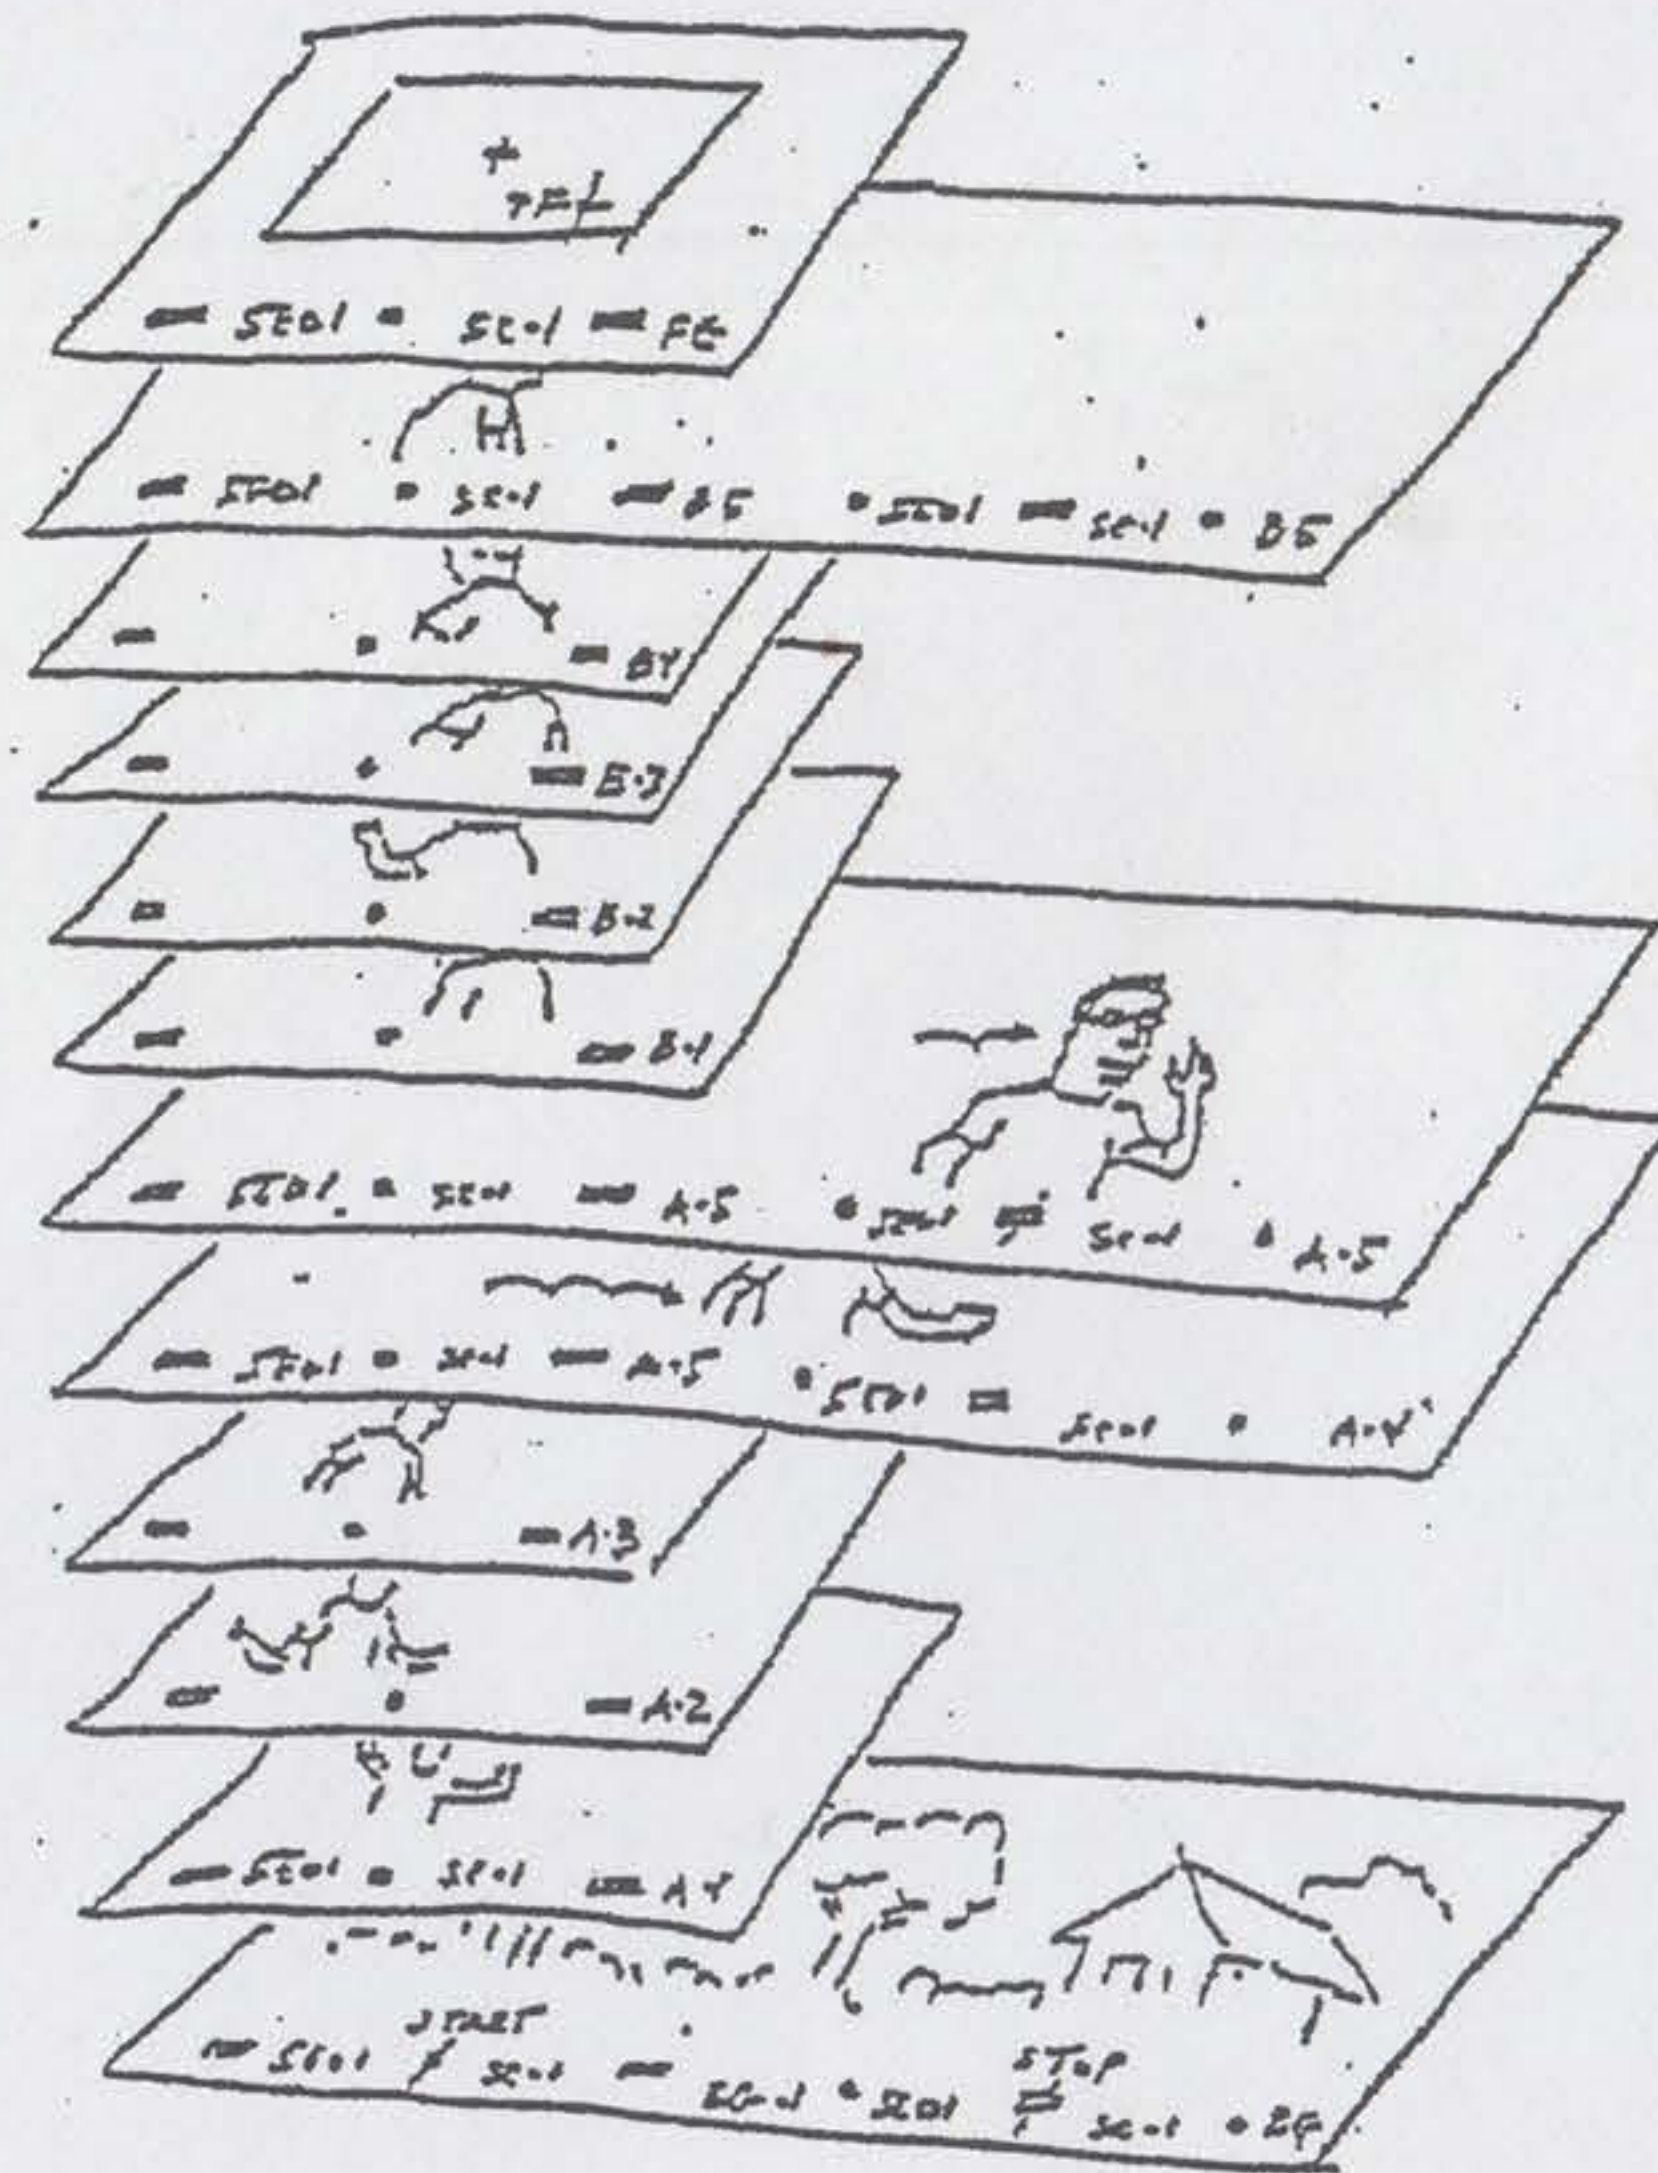 SE01 SC-1 FG
SE01 SC-1 B5 SE01 SC-1 B5
B4
B-3
B-2
B-1
SE01 SC-1 A-5 SE01 SC-1 A-5
SE01 SC-1 A-5 SE01 SC-1 A-4
A-3
A-2
SE01 SC-1 A-1
START STOP
SE01 SC-1 BG-1 SE01 SC-1 BG